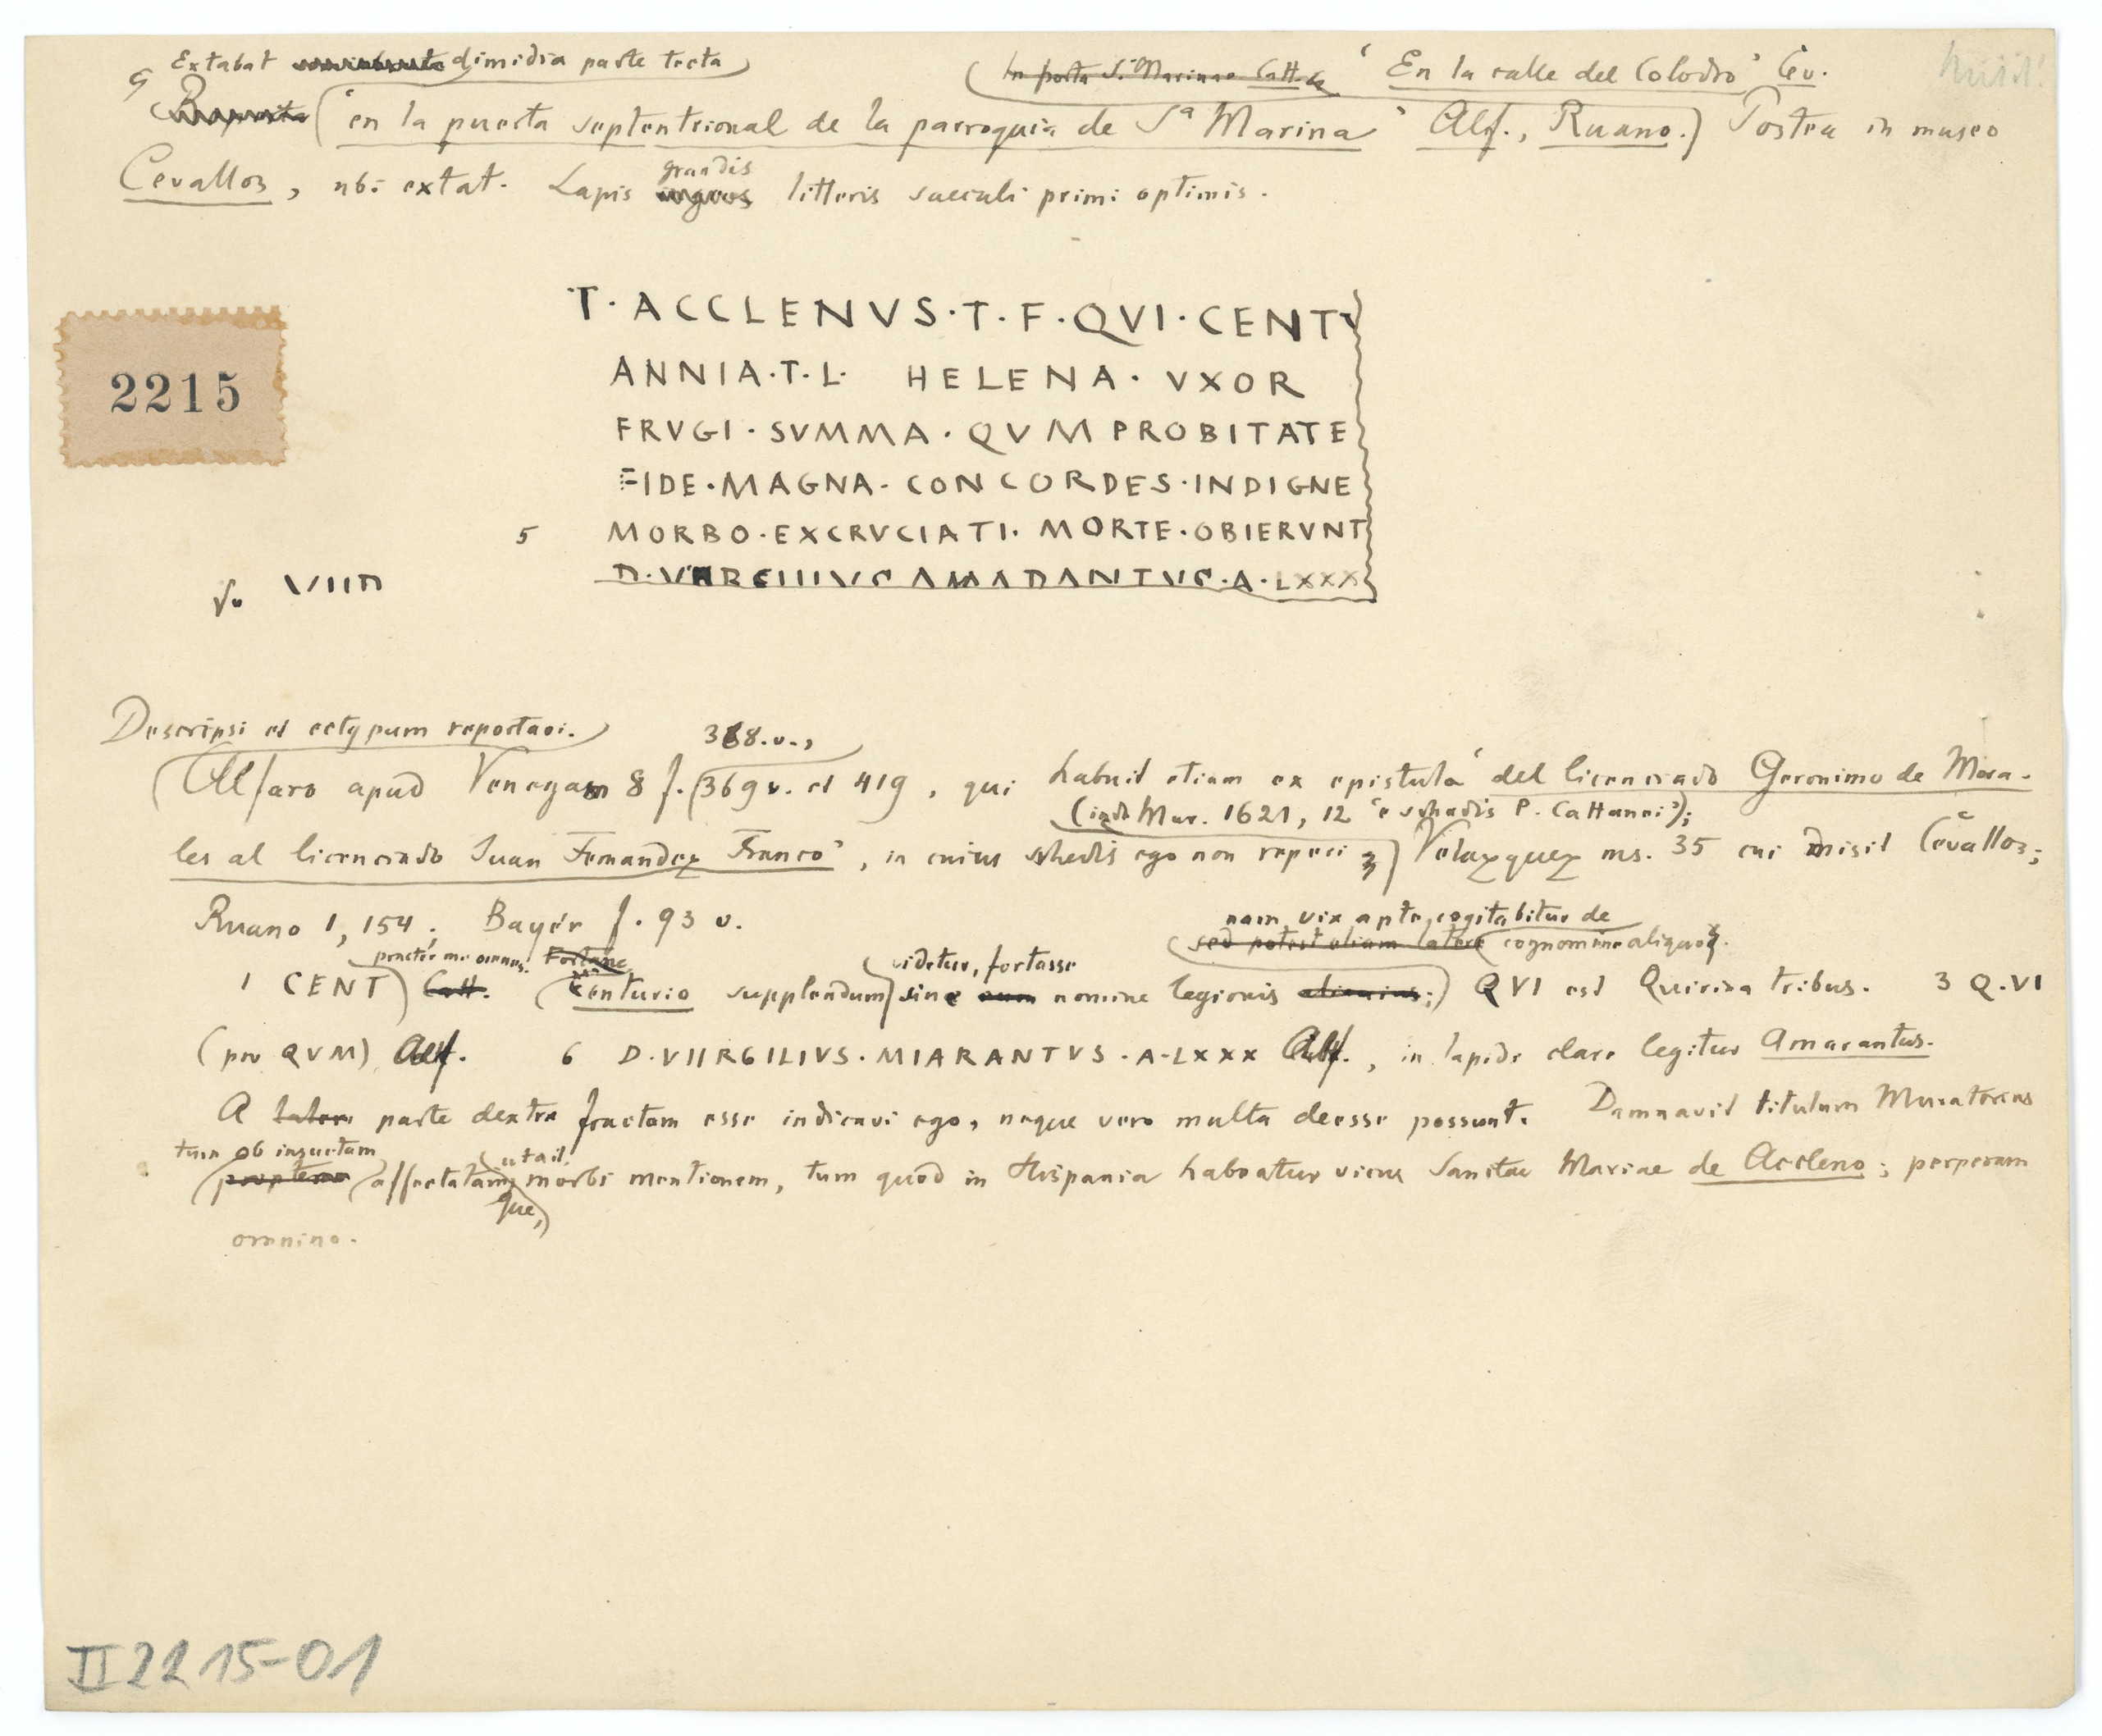 Extabat dimidia parte tecta
In porta S. Marinae Catt. 'En la calle del Colodro' Cev.
'en la puerta septentrional de la parroquia de Sª Marina' Alf., Ruano.) Postea in museo
Cevallos, ubi extat. Lapis grandis litteris saeculi primi optimis.
T·ACCLENVS·T·F·QVI·CENTV
ANNIA·T·L· HELENA· VXOR
FRVGI·SVMMA·QVM PROBITATE
FIDE·MAGNA·CONCORDES·INDIGNE
5 MORBO·EXCRVCIATI·MORTE·OBIERVNT
D·VIIRGILIVS AMARANTVS·A·LXXX
2215
Descripsi et ectypum reportavi.
368.v.,
Alfaro apud Venegam 8 f. 369 v. et 419, qui habuit etiam ex epistula 'del licenciado Geronimo de Mora-
(inde Mur. 1621, 12 'e schedis P. Cattanei');
les al licenciado Juan Fernandez Franco', in cuius schedis ego non reperi; Velazquez ms. 35 cui misit Cevallos;
Ruano 1, 154; Bayer f. 93 v.
nam vix apte cogitabitur de
praeter me omnes. Fortasse videtur, fortasse sed potest etiam latere cognomine aliquo
1 CENT) Catt. Centurio supplendum sine nomine legionis alicuius;) QVI est Quirina tribus. 3 Q·VI
(pro QVM) Alf. 6 D·VIIRGILIVS·MIARANTVS·A·LXXX Alf., in lapide clare legitur Amarantus.
A latere parte dextra fractam esse indicavi ego, neque vero multa deesse possunt. Damnavit titulum Muratorius
tum ob insuetam ut ait
propterea affectatamque morbi mentionem, tum quod in Hispania habeatur vicus Sanctae Mariae de Accleno; perperam
omnino.
II 2215-01